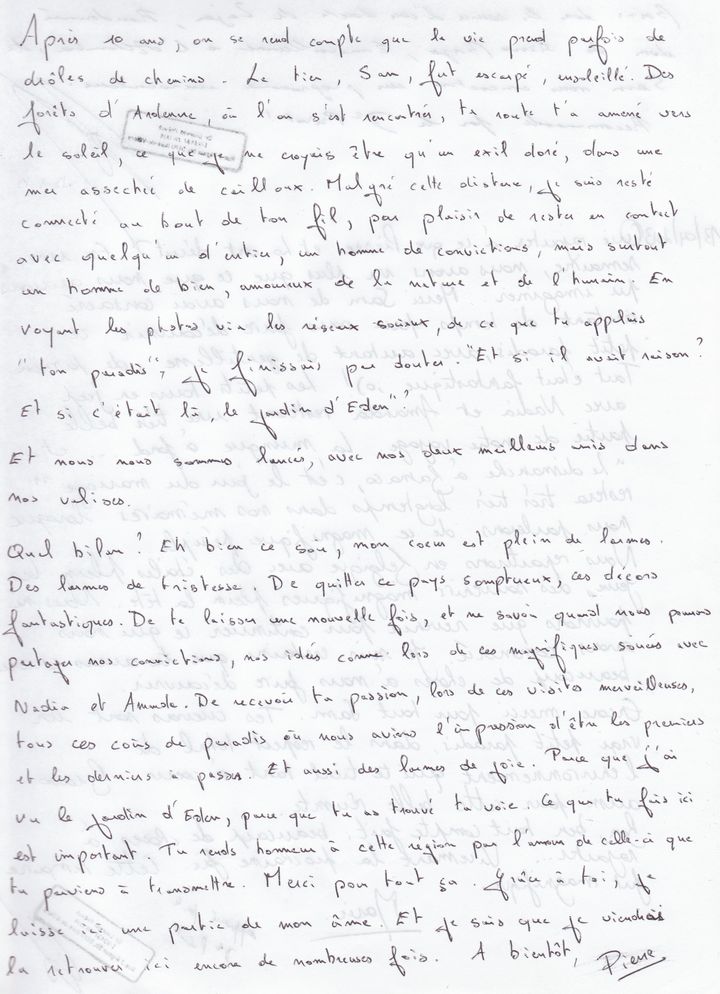 Après 10 ans, on se rend compte que la vie prend parfois de
drôles de chemins. Le tien, Sam, fut escarpé, ensoleillé. Des
forêts d'Ardenne, où l'on s'est rencontrés, ta route t'a amené vers
le soleil, ce que je ne croyais être qu'un exil doré, dans une
mer assechée de cailloux. Malgré cette distance, je suis resté
connecté au bout de ton fil, par plaisir de rester en contact
avec quelqu'un d'entier, un homme de convictions, mais surtout
un homme de bien, amoureux de la nature et de l'humain. En
voyant les photos via les réseaux sociaux, de ce que tu appelais
"ton paradis", je finissais par douter. "Et si il avait raison?
Et si c'était là, le jardin d'Eden"?
Et nous nous sommes lancés, avec nos deux meilleurs amis dans
nos valises.
Quel bilan? Eh bien ce soir, mon coeur est plein de larmes.
Des larmes de tristesse. De quitter ce pays somptueux, ces décors
fantastiques. De te laisser une nouvelle fois, et ne savoir quand nous pourrons
partager nos convictions, nos idées comme lors de ces magnifiques soirées avec
Nadia et Amanda. De recevoir ta passion, lors de ces visites merveilleuses,
tous ces coins de paradis où nous avions l'impression d'être les premiers
et les derniers à passer. Et aussi des larmes de joie. Parce que j'ai
vu le jardin d'Eden, parce que tu as trouvé ta voie. Ce que tu fais ici
est important. Tu rends honneur à cette région par l'amour de celle-ci que
tu parviens à transmettre. Merci pour tout ça. Grâce à toi, je
laisse ici une partie de mon âme. Et je sais que je viendrai
la retrouver ici encore de nombreuses fois. A bientôt, Pierre